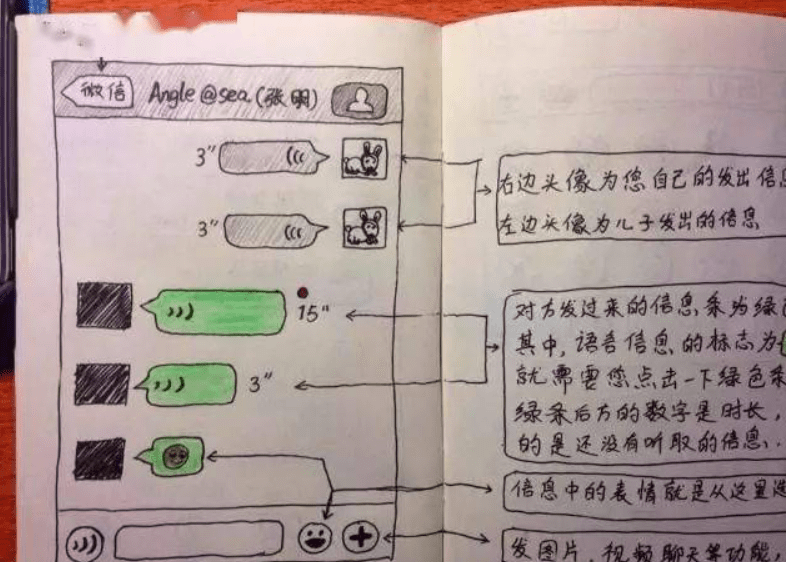 微信 Angle@sea(张明)
3"
右边头像为您自己的发出信息
3"
左边头像为儿子发出的信息
15"
对方发过来的信息条为绿
其中,语音信息的标志为
3"
就需要您点击一下绿色条
绿条后方的数字是时长,
的是还没有听取的信息.
信息中的表情就是从这里选
发图片,视频聊天等功能,